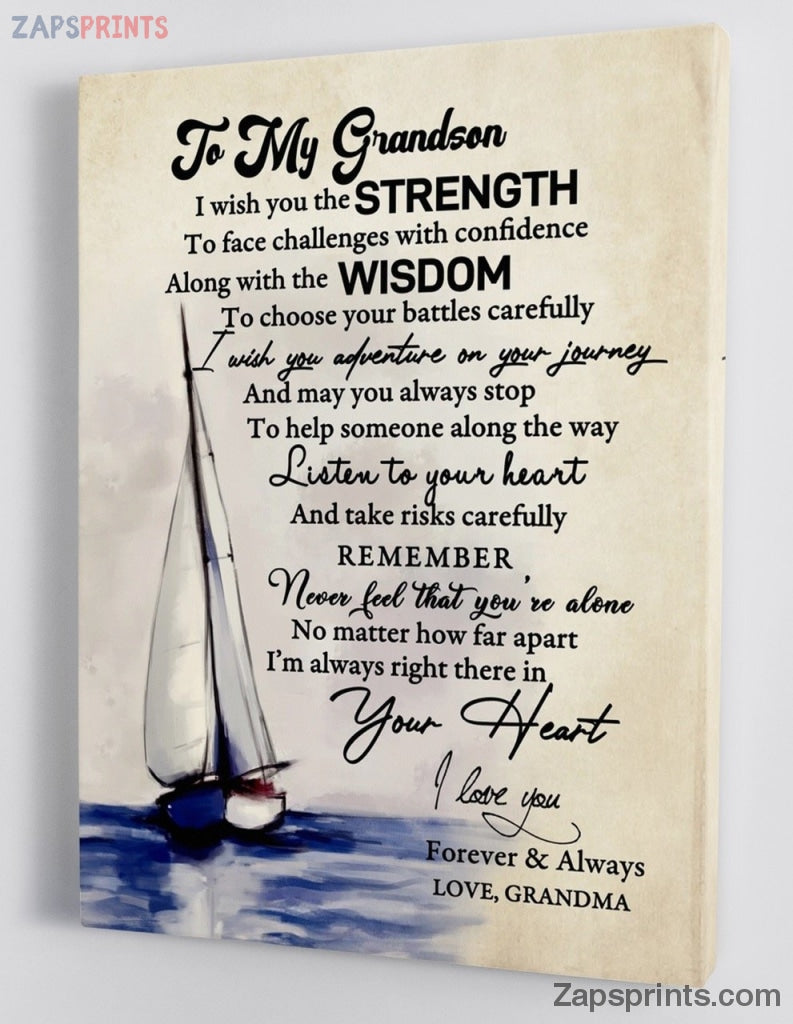 ZAPSPRINTS
To My Grandson
I wish you the STRENGTH
To face challenges with confidence
Along with the WISDOM
To choose your battles carefully
I wish you adventure on your journey
And may you always stop
To help someone along the way
Listen to your heart
And take risks carefully
REMEMBER
Never feel that you're alone
No matter how far apart
I'm always right there in
Your Heart
I love you
Forever & Always
LOVE, GRANDMA
Zapsprints.com